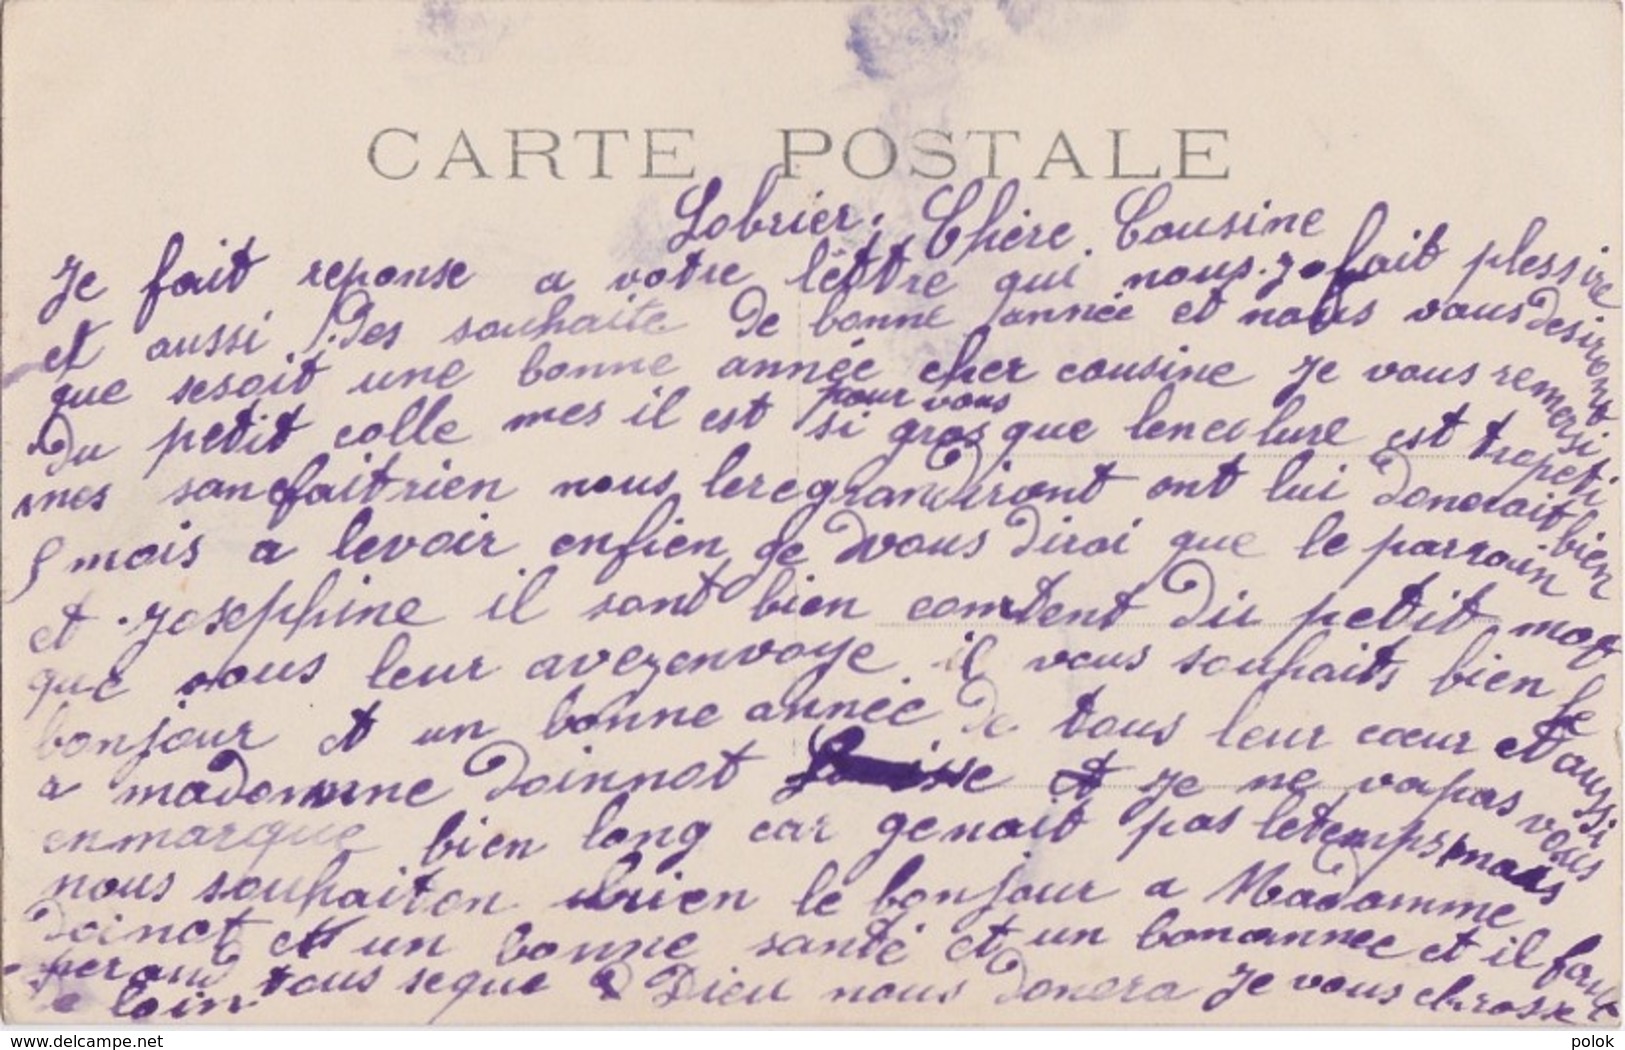 CARTE POSTALE
Lobrier, Chère Cousine
Je fait reponse a votre lèttre qui nous fait plessire
et aussi des souhaite de bonne année et nous vous desiront
que sesoit une bonne année cher cousine Je vous remersi
Du petit colle mes il est si gros que lencolure est tropeti
pour vous
mes sanfaitrien nous leregrandiront ont lui donerait bien
5 mois a levoir enfien ge vous dirai que le parrain
et Josephine il sont bien contents du petit mot
que vous leur avezenvoye il vous souhaits bien le
bonjour et un bonne année de tous leur cœur et aussi
a madomme Doinnot et Je ne vapas vous
enmarque bien long car genait pas letemps mais
nous souhaiton bien le bonjour a Madomme
Doinot et un bonne santé et un bonannee et il faut
perand tous seque Dieu nous donera Je vous ebrasse
e loin
www.delcampe.net
polok